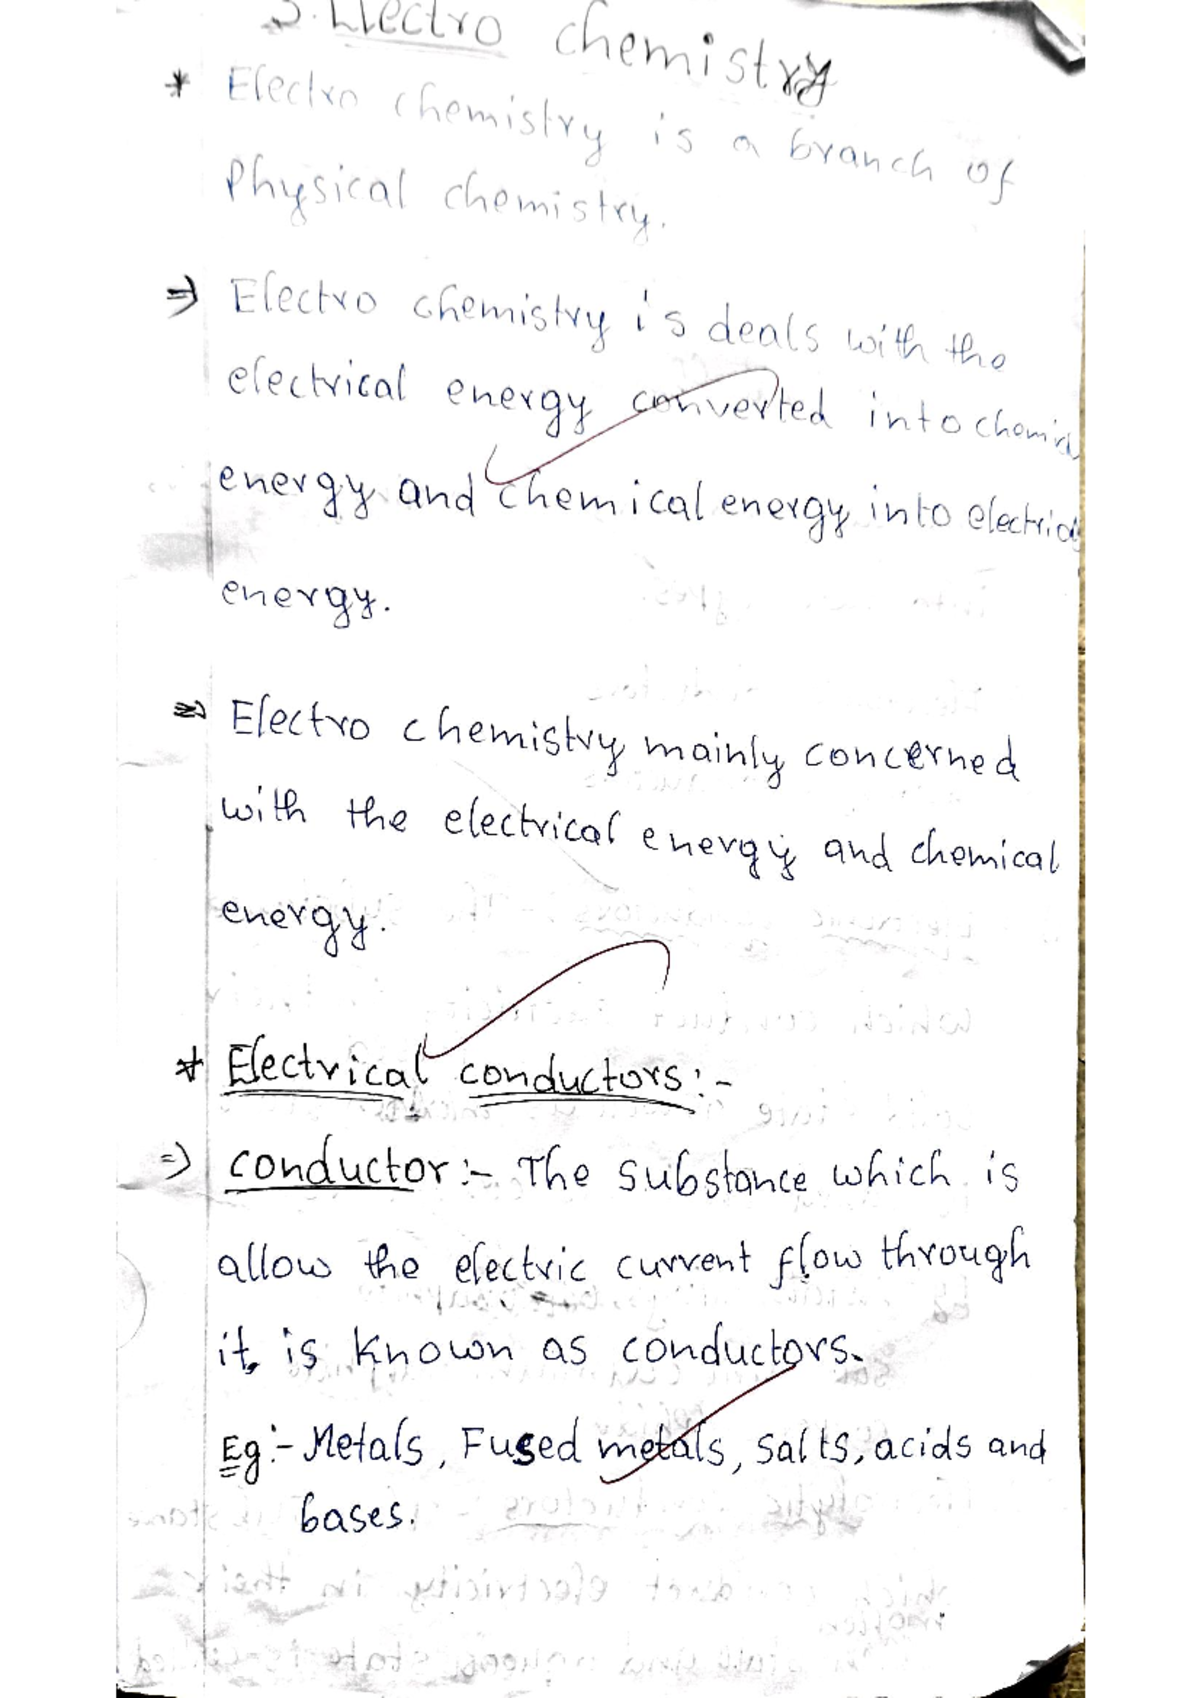 3. Electro chemistry
* Electro chemistry is a branch of
Physical chemistry.
⇒ Electro chemistry is deals with the
electrical energy converted into chemica
energy and chemical energy into electrical
energy.
⇒ Electro chemistry mainly concerned
with the electrical energy and chemical
energy.
* Electrical conductors:-
⇒ conductor:- The substance which is
allow the electric current flow through
it, is known as conductors.
Eg:- Metals, Fused metals, salts, acids and
bases.